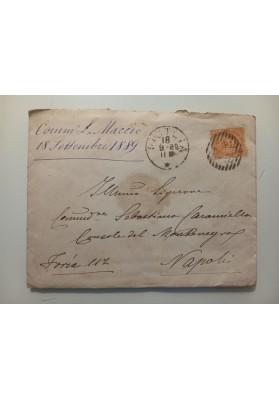 Comm. L. Maccio
18 Settembre 1889
18
9-89
11 M
Illmo Signore
Commdre Sebastiano Caramiello
Console del Montenegro
Foria 112
Napoli